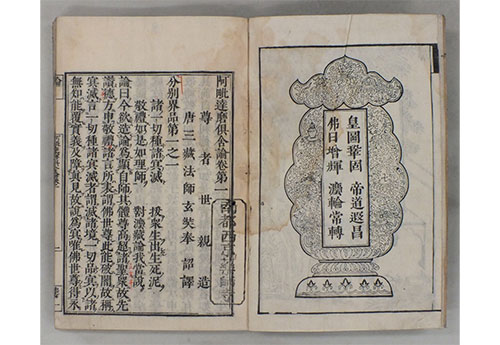 皇圖鞏固　帝道遐昌
佛日增輝　灋輪常轉
阿毗達磨俱舍論卷第一
尊者世親造
唐三藏法師玄奘奉　詔譯
分別界品第一之一
諸一切種諸冥滅　拔衆生出生死泥
敬禮如是如理師　對灋藏論我當說
論曰今欲造論爲顯自師其體尊高超諸聖衆故先
讚德方申敬禮諸言所表謂佛世尊此能破闇故稱
冥滅言一切種諸冥滅者謂滅諸境一切品冥以諸
無知能覆實義及障眞見故說爲冥唯佛世尊得永
南都西